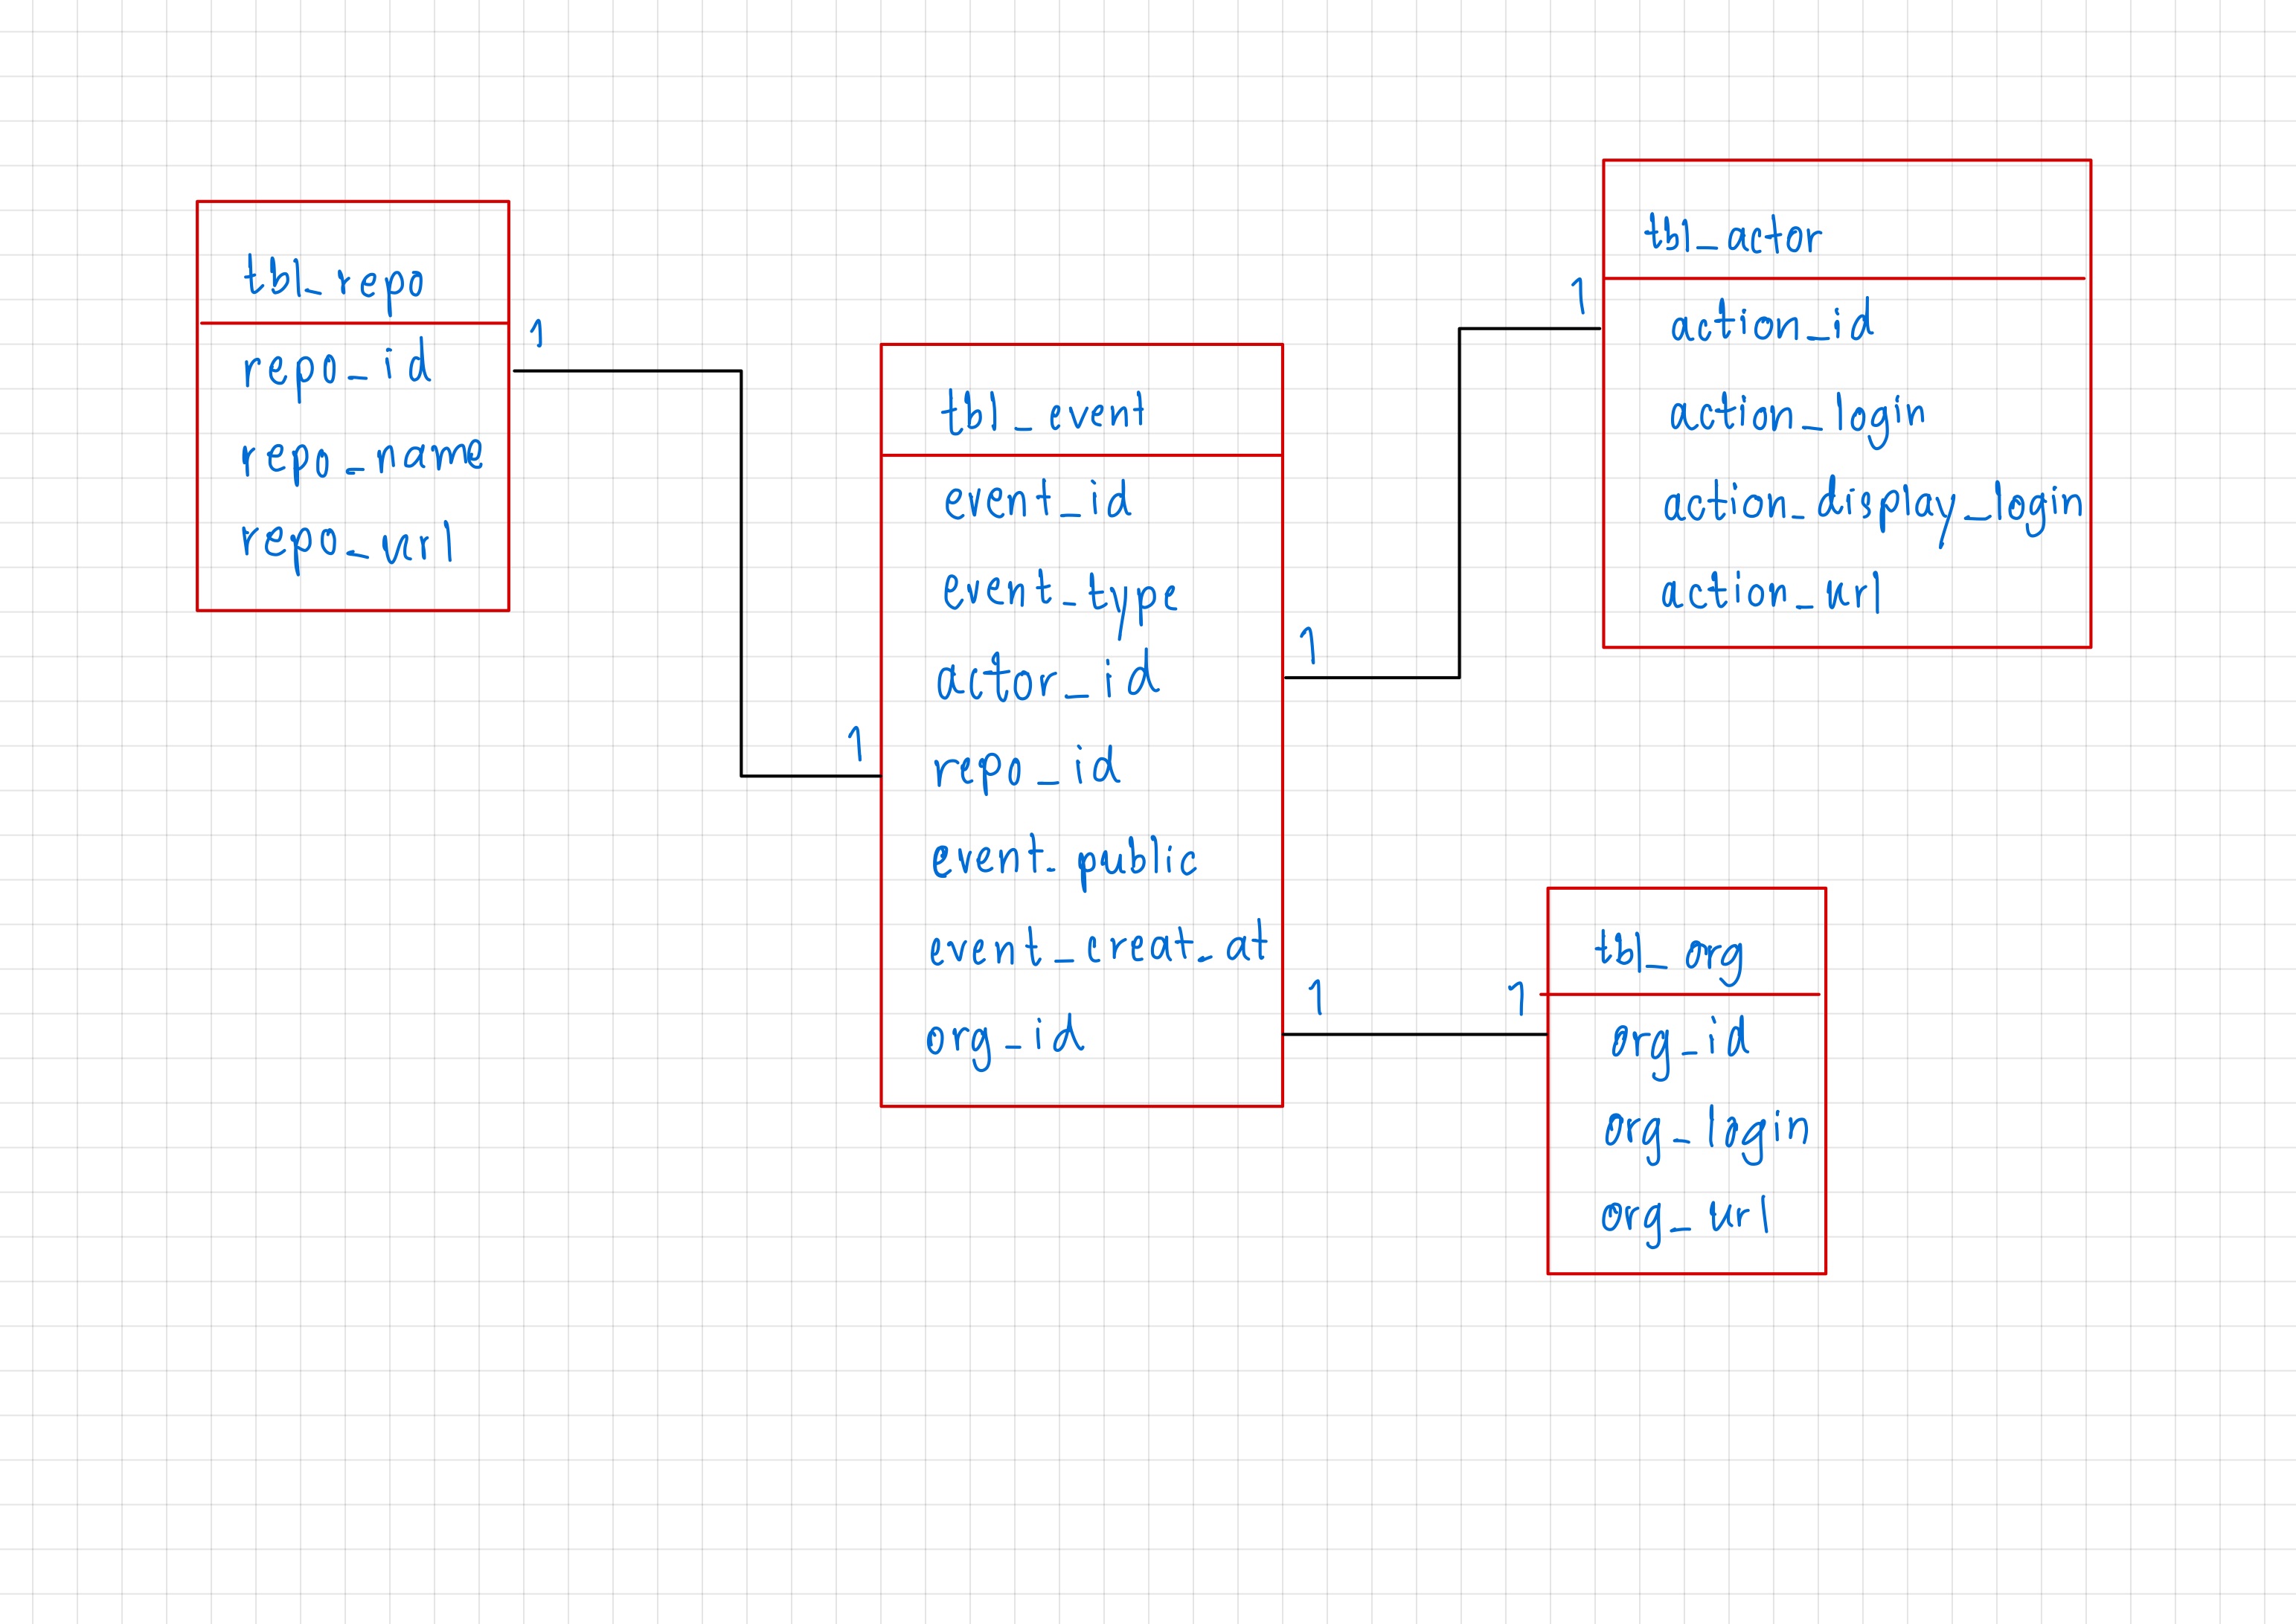 tbl_repo
repo_id
repo_name
repo_url
1
1
tbl_event
event_id
event_type
actor_id
repo_id
event_public
event_creat_at
org_id
1
1
tbl_actor
action_id
action_login
action_display_login
action_url
1
1
tbl_org
org_id
org_login
org_url